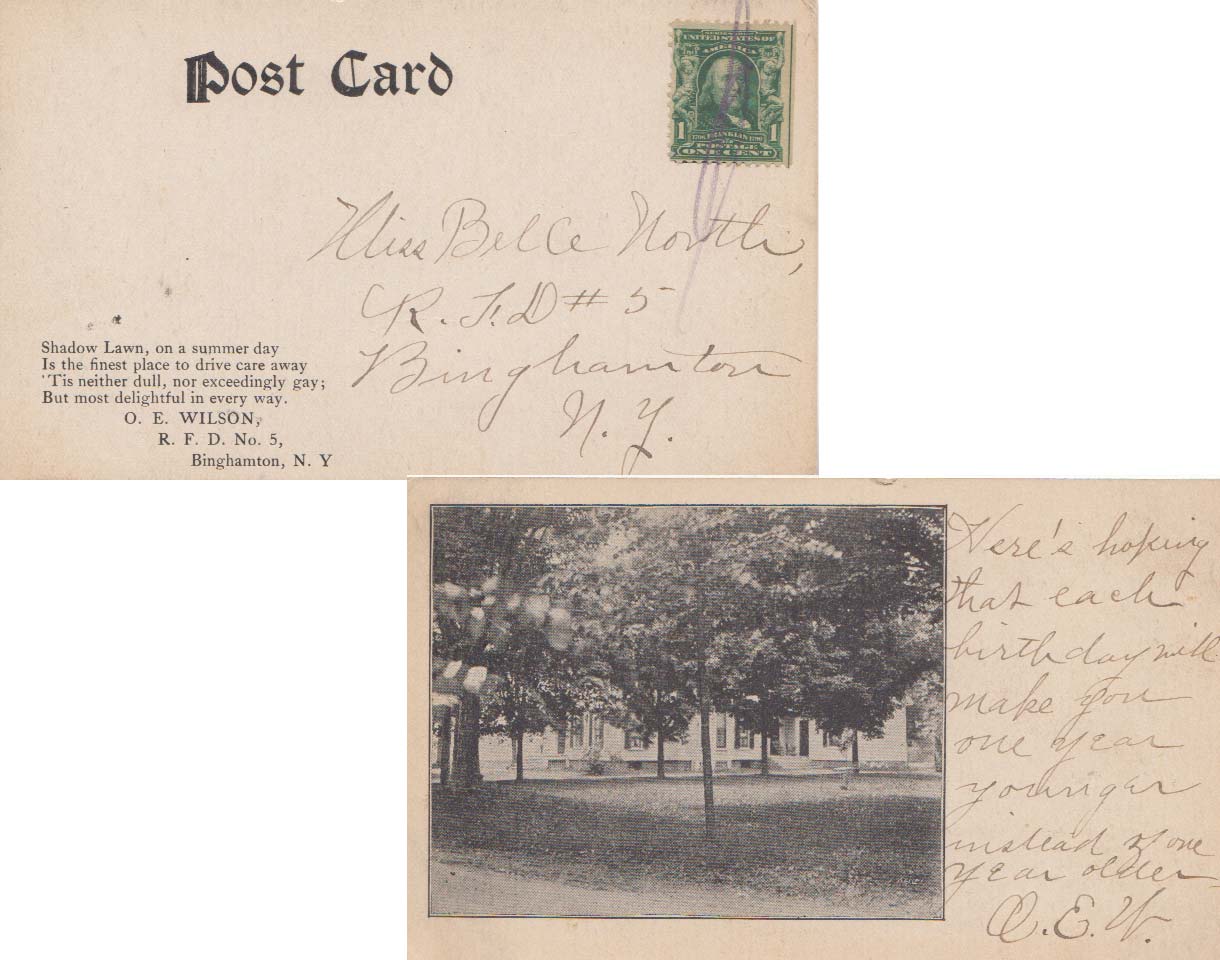 Post Card
SERIES 1902
UNITED STATES OF
AMERICA
1 1
1706 FRANKLIN 1790
POSTAGE
ONE CENT
Miss Belle North,
R.F.D # 5
Binghamton
N.Y.
Shadow Lawn, on a summer day
Is the finest place to drive care away
'Tis neither dull, nor exceedingly gay;
But most delightful in every way.
O. E. WILSON,
R. F. D. No. 5,
Binghamton, N. Y
Here's hoping
that each
birthday will
make you
one year
younger
instead of one
year older
O.E.W.